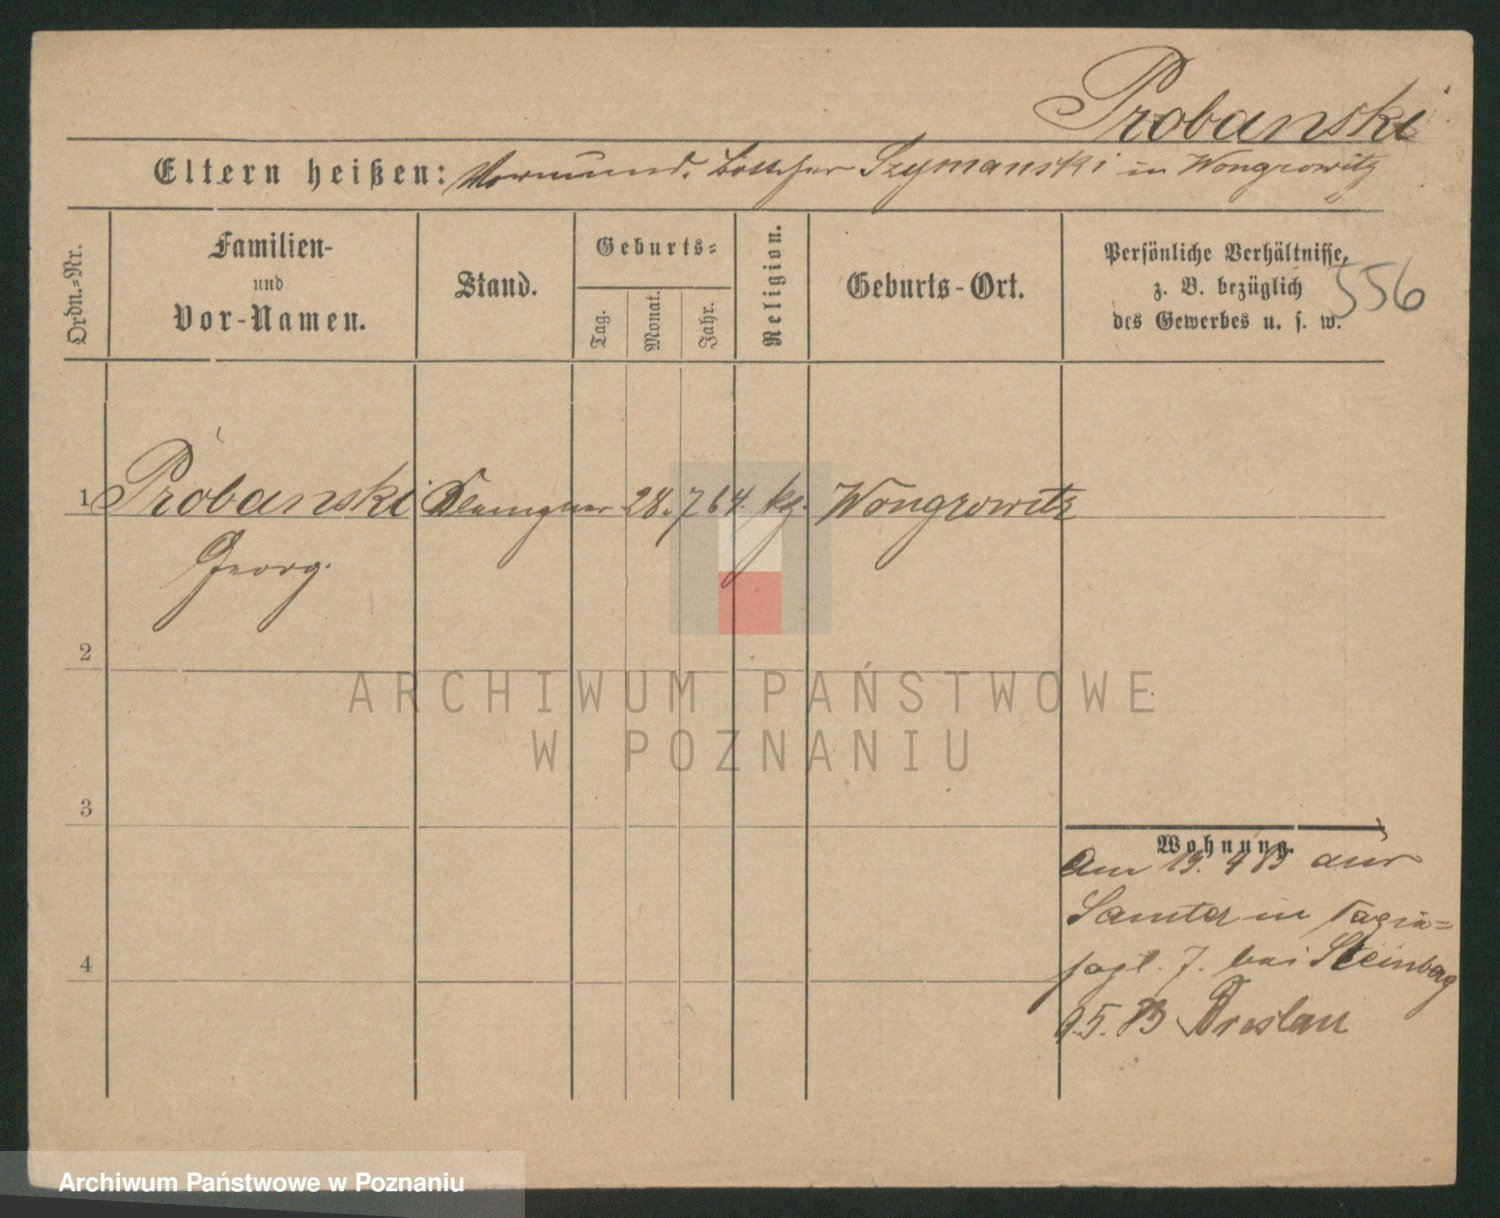 Probanski
Eltern heißen: Vormund. Böttcher Szymanski in Wongrowitz
Ordn.-Nr.
Familien-
und
Vor-Namen.
Stand.
Geburts-
Tag.
Monat.
Jahr.
Religion.
Geburts-Ort.
Persönliche Verhältnisse,
z. B. bezüglich
des Gewerbes u. s. w.
556
1 Probanski Klempner 28. 7 64. kg. Wongrowitz
Georg.
2
3
4
Wohnung.
Am 19. 4 83 aus
Samter in
7. bei Steinberg
9.5. 83 Breslau
ARCHIWUM PAŃSTWOWE
W POZNANIU
Archiwum Państwowe w Poznaniu